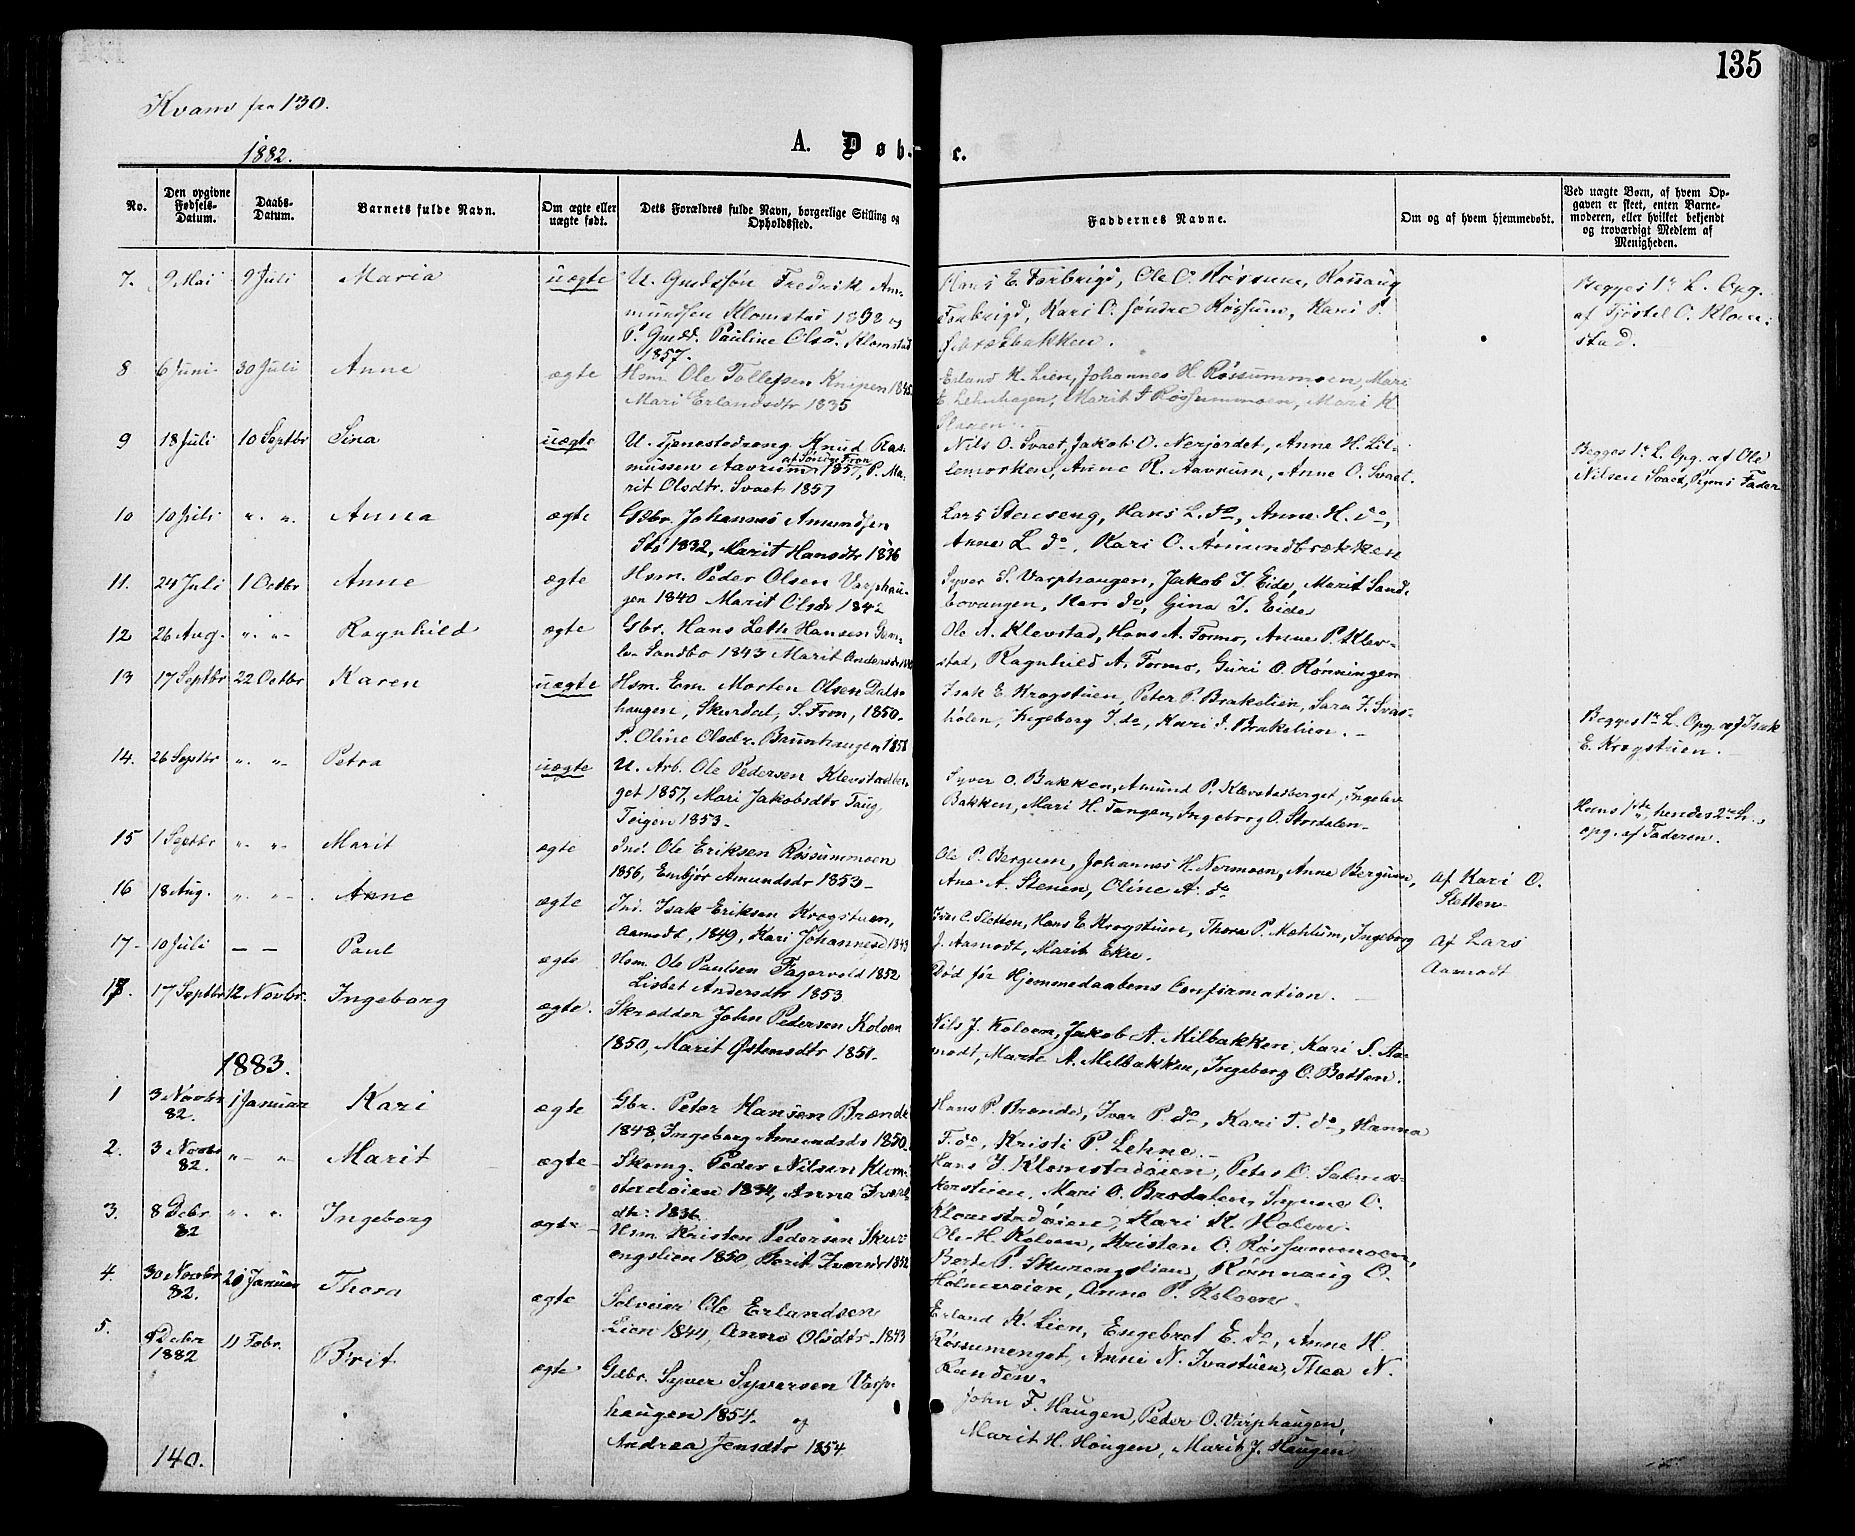 135
Kvam fra 130.
1882.
A. Døb- te.
No.
Den opgivne Fødsels-Datum.
Daabs-Datum.
Barnets fulde Navn.
Om ægte eller uægte født.
Dets Forældres fulde Navn, borgerlige Stilling og Opholdssted.
Faddernes Navne.
Om og af hvem hjemmedøbt.
Ved uægte Børn, af hvem Op-
gaven er skeet, enten Barne-
moderen, eller hvilket bekjendt
og troværdigt Medlem af
Menigheden.
7. 9 Mai 9 Juli Maria uægte U. Gmdssøn Fredrik Am-
mundsen Klomstad 1838 og
P. Gmdd. Pauline Olsd. Klomstad
1857.
Hans E. Forbrigd, Ole O. Røssum,
Forbrigd, Kari O. Søndre Røssum, Kari P.
Begges 1te L. Opg.
af Fjøstel O. Klom-
stad.
8 6 Juni 30 Juli Anne ægte Hsm. Ole Tollefsen Knipen 1845
Mari Erlandsdtr 1835
Erland K. Lien, Johannes H. Røssummoen, Mari
E. Lehnhagen, Marit J. Røssummoen, Mari K.
9 18 Juli 10 Septbr Sina uægte U. Tjenestedreng Knud Ras-
mussen Aavrum af Søndre Fron 1857, P. Ma-
rit Olsdtr. Svaet 1857
Nils O. Svaet, Jakob O. Nerjordet, Anne H. Lil-
lemorken, Anne R. Aavrum, Anne O. Svaet.
Begges 1te L. Opg. af Ole
Nilsen Svaet, Pigens Fader
10 10 Juli " " Anna ægte Gbr. Johannes Amundsen
Stø 1832, Marit Hansdtr 1836
Lars Stenseng, Hans L. do, Anne H. do,
Anne L. do, Kari O. Amundbrækken
11. 24 Juli 1 Octbr Anne ægte Hsm. Peder Olsen Varphau-
gen 1840 Marit Olsdr 1842
Syver S. Varphaugen, Jakob J. Eide, Marit Sand-
bovangen, Kari do, Gina J. Eide
12 26 Aug. " " Ragnhild ægte Gbr. Hans Leth Hansen Gam-
le Sandbo 1843 Marit Andersdr
Ole A. Klevstad, Hans A. Formo, Anne P. Klev-
stad, Ragnhild A. Formo, Guri O. Rønningen
13 17 Septbr 22 Octbr Karen uægte Hsm. Em. Morten Olsen Dals-
haugen, Skurdal, S. Fron, 1850.
P. Oline Olsdr. Brunhaugen 1858
Isak E. Krogstuen, Peter P. Brakelien, Sara J. Svas-
hølen, Ingeborg J. do, Kari J. Brakelien.
Begges 1te L. Opg. af Isak
E. Krogstuen.
14. 26 Septbr " " Petra uægte U. Arb. Ole Pedersen Klevstadber-
get 1857, Mari Jakobsdtr Taug,
Teigen 1853
Syver O. Bakken, Amund P. Klevstadberget, Ingeleiv
Bakken, Mari H. Tangen, Ingeborg O. Stordalen
Hans 1ste, hendes 2det L.,
opg. af Faderen.
15 1 Septbr " " Marit ægte Ind. Ole Eriksen Røssummoen
1856, Embjør Amundsdr 1853
Ole P. Bergum, Johannes H. Nermoen, Anne Bergum,
Ane A. Stenen, Oline A. do
16 18 Aug. " " Anne ægte Ind. Isak Eriksen Krogstuen,
Aamodt, 1849, Kari Johannesd 1843
Ivar O. Sletten, Hans E. Krogstuen, Thora P. Mæhlum, Ingeborg
J. Aamodt, Marit Ekre.
af Kari O.
Sletten
17 10 Juli — — Paul ægte Hsm. Ole Paulsen Fagervold 1852
Lisbet Andersdtr 1853
Død før Hjemmedaabens Confirmation.
af Lars
Aamodt
18. 17 Septbr 12 Novbr. Ingeborg ægte. Skrædder John Pedersen Koloen
1850, Marit Østensdtr 1851
Nils J. Koloen, Jakob A. Milbakken, Kari S. Aa-
modt, Marte A. Milbakken, Ingeborg O. Botten.
1883.
1 3 Novbr 82. 1 Januar Kari ægte Gbr. Peter Hansen Brænde
1848, Ingeborg Amundsd 1850
Hans P. Brænde, Ivar P. do, Kari T. do, Hanna
F. do, Kristi P. Lehne.
2. 3 Novbr 82. " " Marit ægte Skomg. Peder Nilsen Klom-
stadøien 1834, Anna Iversd-
dtr. 1836
Hans J. Klomstadøien, Peter O. Solma-
kerstuen, Mari O. Brodalen, Synne O.
Klomstadøien, Kari K. Holen.
3. 8 Debr 82 " " Ingeborg ægte Hsm. Kristen Pedersen Skur-
engslien 1850 Berit Iversdr 1852
Ole H. Koloen, Kristen O. Røssummoen,
Berte P. Skurengslien, Rønnaug O.
Holmeveien, Anne P. Koloen.
4. 30 Novbr 82. 21 Januar Thora ægte Selveier Ole Erlandsen
Lien 1844, Anne Olsdtr. 1843
Erland K. Lien, Engebret E. do, Anne H.
Røssumenget, Anne N. Ivastuen, Thea N.
Randen.
5. Debr 1882 11 Febr. Brit ægte Gdbr. Syver Syversen Varp-
haugen 1854 og
Andrea Jensdtr 1854
John F. Haugen, Peder O. Varphaugen,
Marit H. Haugen, Marit J. Haugen
140.